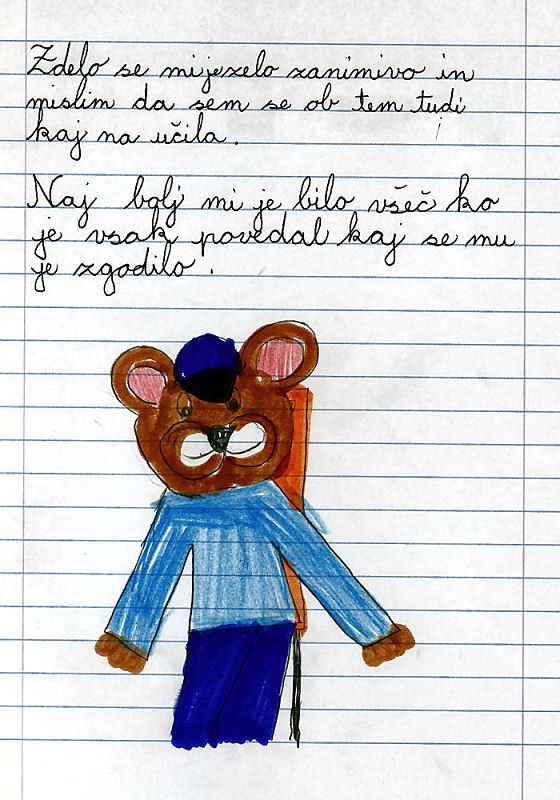 Zdelo se mi je zelo zanimivo in
mislim da sem se ob tem tudi
kaj na učila.
Naj bolj mi je bilo všeč ko
je vsak povedal kaj se mu
je zgodilo.